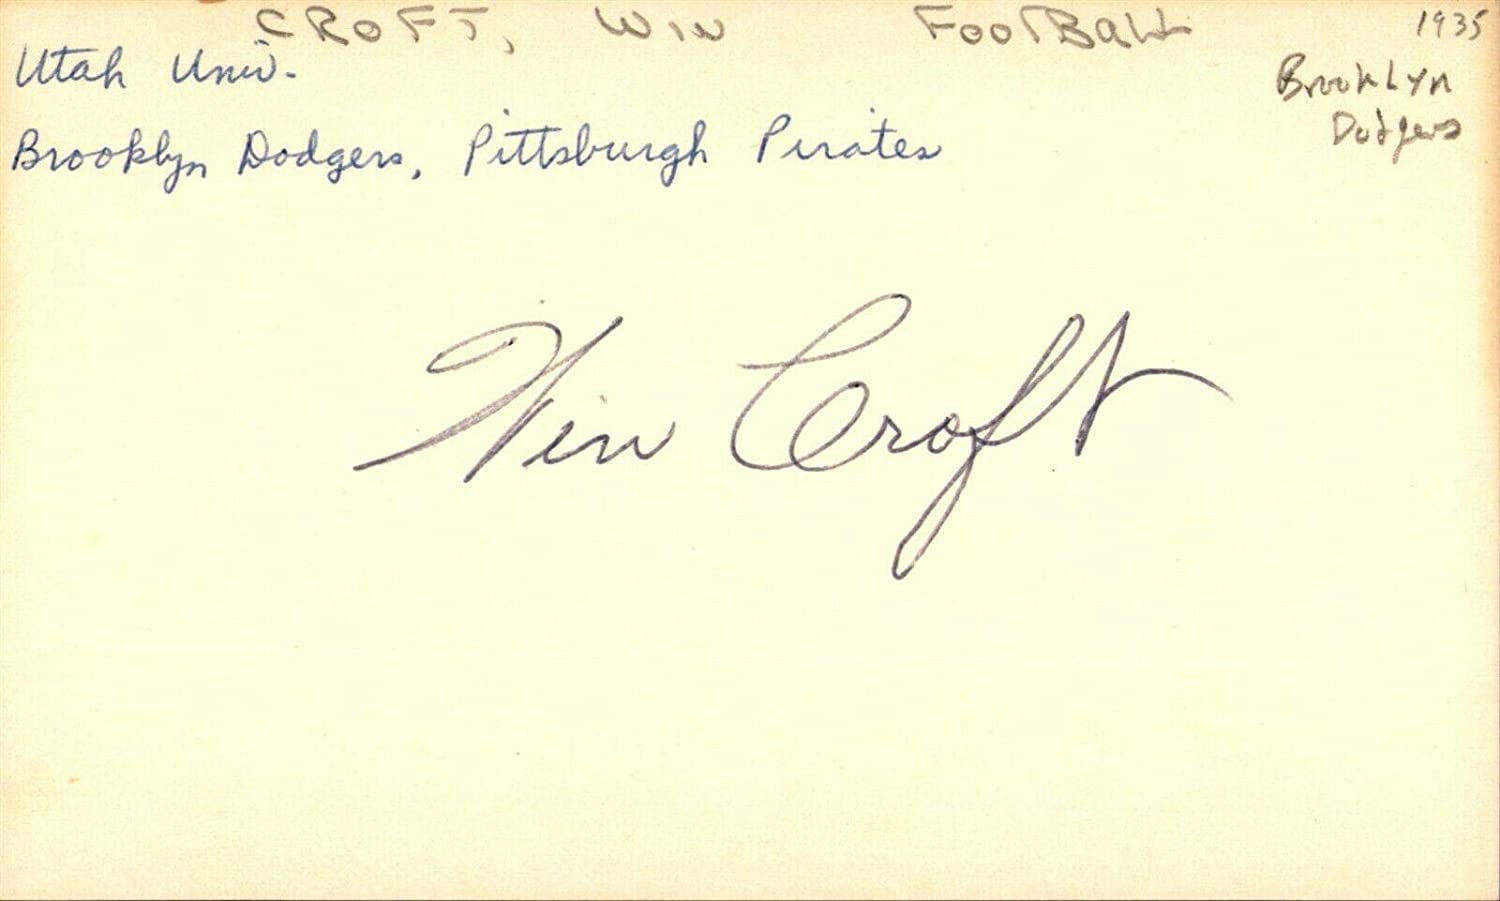 CROFT, WIN FOOTBALL 1935
Utah Univ.
Brooklyn
Dodgers
Brooklyn Dodgers, Pittsburgh Pirates
Win Croft